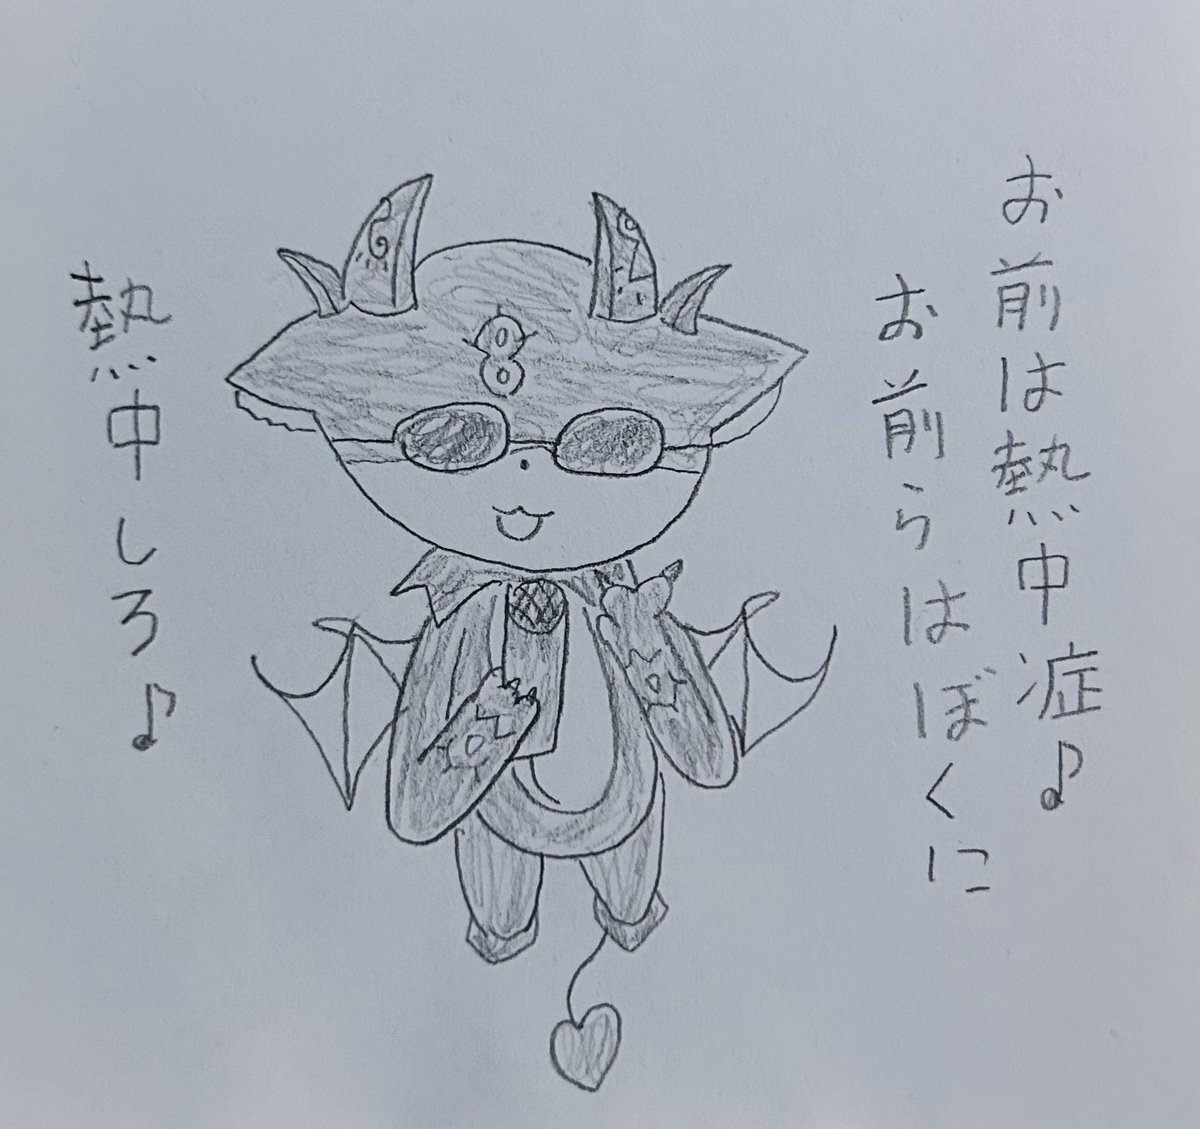 お前は熱中症♪
お前らはぼくに
熱中しろ♪